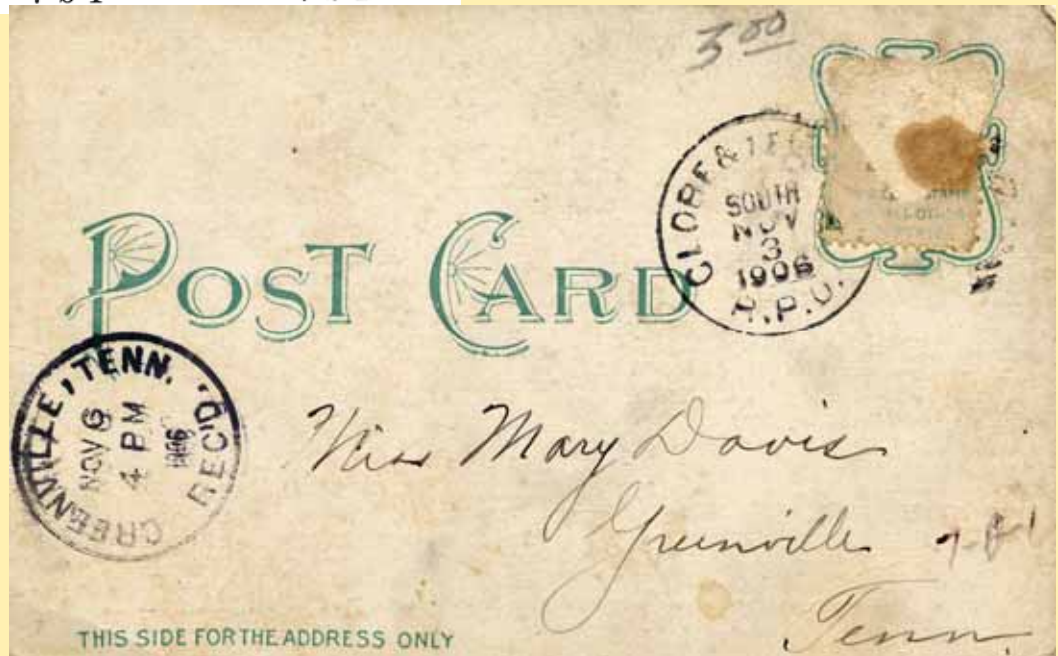 3 00
GLOBE &
SOUTH
NOV
3
1906
R.P.O.
POST CARD
GREENVILLE, TENN.
NOV 6
4 PM
1906
REC'D.
Miss Mary Davis
Greenville
Tenn.
THIS SIDE FOR THE ADDRESS ONLY